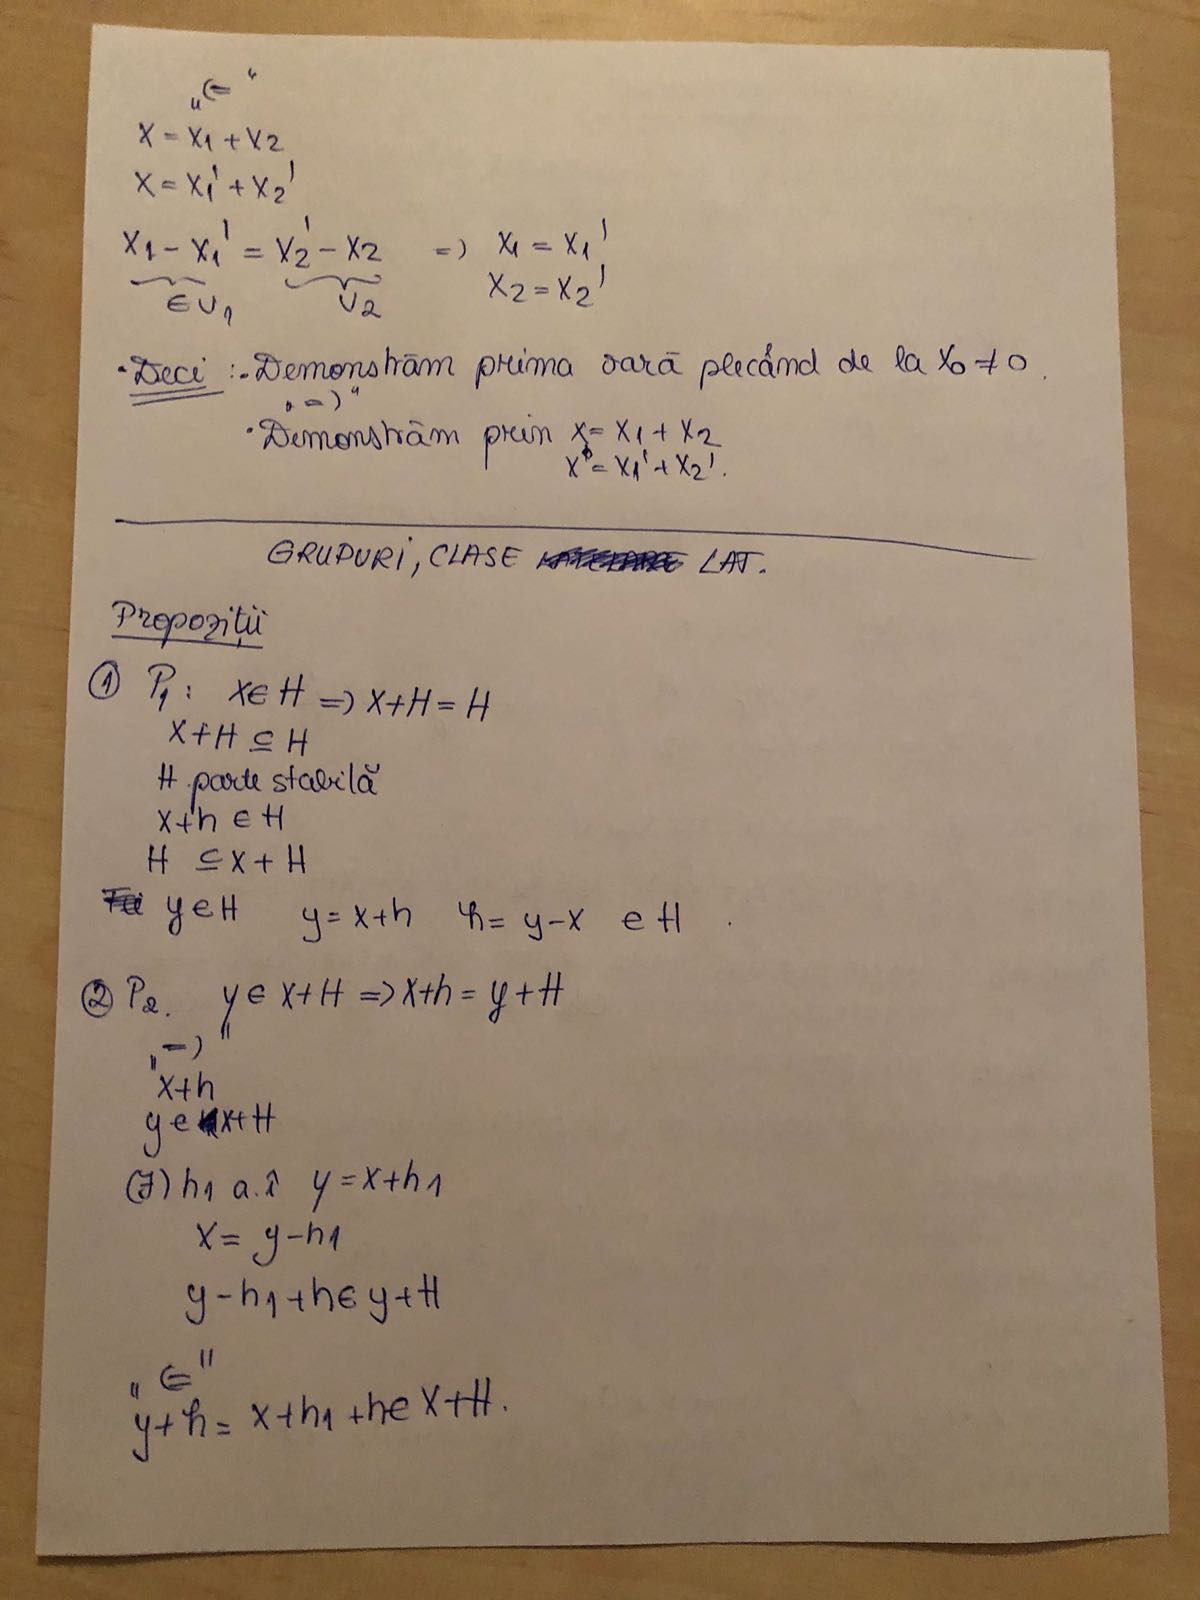 „⇐“
x = x1 + x2
x = x1' + x2'
x1 - x1' = x2' - x2 => x1 = x1'
∈ U1 U2 x2 = x2'
• Deci : - Demonstrăm prima oară plecând de la x0 ≠ 0.
„=>“
• Demonstrăm prin x = x1 + x2
x = x1' + x2'.
GRUPURI, CLASE LAT.
Propoziții
① P1: x∈H => x+H = H
x+H ⊆ H
H parte stabilă
x+h ∈ H
H ⊆ x+H
y∈H y = x+h h = y-x ∈ H .
② P2. y ∈ x+H => x+h = y+H
„=>"
x+h
y ∈ x+H
(∃) h1 a.î y = x+h1
x = y-h1
y-h1+h ∈ y+H
„⇐"
y+h = x+h1+h ∈ x+H.